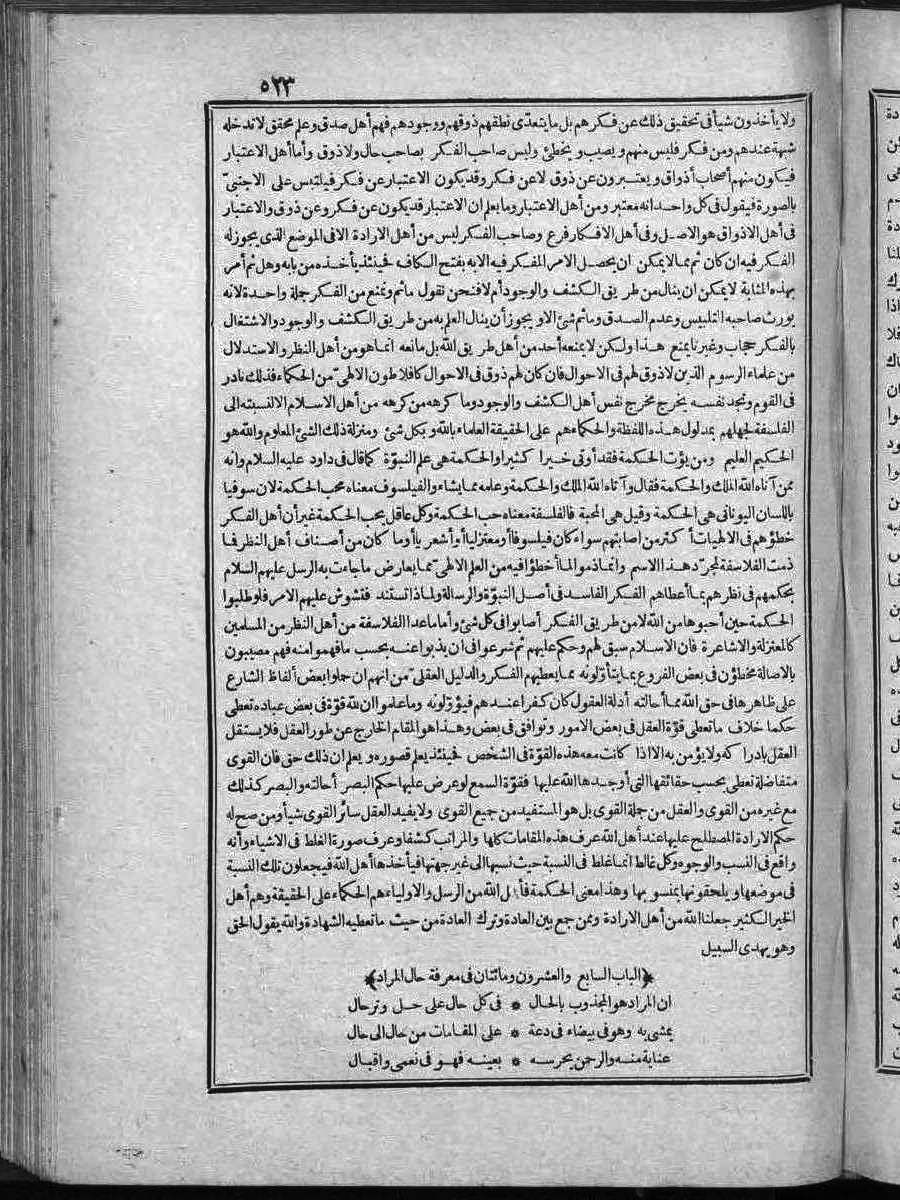 ٥٢٣
ولا يأخذون شيأ فى تحقيق ذلك عن فكرهم بل ما يتعدّى نطقهم ذوقهم ووجودهم فهم أهل صدق وعلم محقق لا تدخله
شبهة عندهم ومن فكر فليس منهم ويصيب ويخطئ وليس صاحب الفكر بصاحب حال ولا ذوق وأما أهل الاعتبار
فيكون منهم أصحاب أذواق ويعتبرون عن ذوق لا عن فكر وقد يكون الاعتبار عن فكر فيلتبس على الاجنبىّ
بالصورة فيقول فى كل واحد انه معتبر ومن أهل الاعتبار وما يعلم ان الاعتبار قد يكون عن فكر وعن ذوق والاعتبار
فى أهل الاذواق هو الاصل وفى أهل الافكار فرع وصاحب الفكر ليس من أهل الارادة الا فى الموضع الذى يجوز له
الفكر فيه ان كان ثم مما لا يمكن ان يحصل الامر المفكر فيه الا به بفتح الكاف فحينئذ يأخذه من بابه وهل ثم أمر
بهذه المثابة لا يمكن ان ينال من طريق الكشف والوجود أم لا فنحن نقول ما ثم ونمنع من الفكر جملة واحدة لانه
يورث صاحبه التلبيس وعدم الصدق وما ثم شئ الا ويجوز أن ينال العلم به من طريق الكشف والوجود والاشتغال
بالفكر حجاب وغيرنا يمنع هذا ولكن لا يمنعه أحد من أهل طريق الله بل مانعه انما هو من أهل النظر والاستدلال
من علماء الرسوم الذين لا ذوق لهم فى الاحوال فان كان لهم ذوق فى الاحوال كافلاطون الالهىّ من الحكماء فذلك نادر
فى القوم وتجد نفسه يخرج مخرج نفس أهل الكشف والوجود وما كرهه من كرهه من أهل الاسلام الا لنسبته الى
الفلسفة لجهلهم بمدلول هذه اللفظة والحكماء هم على الحقيقة العلماء بالله وبكل شئ ومنزلة ذلك الشئ المعلوم والله هو
الحكيم العليم ومن يؤت الحكمة فقد أوتى خيرا كثيرا والحكمة هى علم النبوّة كما قال فى داود عليه السلام وانه
ممن آتاه الله الملك والحكمة فقال وآتاه الله الملك والحكمة وعلمه مما يشاء والفيلسوف معناه محب الحكمة لان سوفيا
باللسان اليونانى هى الحكمة وقيل هى المحبة فالفلسفة معناه حب الحكمة وكل عاقل يحب الحكمة غير أن أهل الفكر
خطؤهم فى الالهيات أكثر من اصابتهم سواء كان فيلسوفا أو معتزليا أو أشعريا أو ما كان من أصناف أهل النظر فما
ذمت الفلاسفة لمجرّد هذا الاسم وانما ذموا لما أخطؤا فيه من العلم الالهىّ مما يعارض ما جاءت به الرسل عليهم السلام
بحكمهم فى نظرهم بما أعطاهم الفكر الفاسد فى أصل النبوّة والرسالة ولماذا تستند فتشوش عليهم الامر فلو طلبوا
الحكمة حين أحبوها من الله لا من طريق الفكر أصابوا فى كل شئ وأما ما عدا الفلاسفة من أهل النظر من المسلمين
كالمعتزلة والاشاعرة فان الاسلام سبق لهم وحكم عليهم ثم شرعوا فى ان يذبوا عنه بحسب ما فهموا منه فهم مصيبون
بالاصالة مخطؤن فى بعض الفروع بما يتأوّلونه مما يعطيهم الفكر والدليل العقلىّ من انهم ان حملوا بعض ألفاظ الشارع
على ظاهرها فى حق الله مما أحالته أدلة العقول كان كفرا عندهم فيؤوّلونه وما علموا ان لله قوّة فى بعض عباده تعطى
حكما خلاف ما تعطى قوّة العقل فى بعض الامور وتوافق فى بعض وهذا هو المقام الخارج عن طور العقل فلا يستقل
العقل بادراكه ولا يؤمن به الا اذا كانت معه هذه القوّة فى الشخص فحينئذ يعلم قصوره ويعلم ان ذلك حق فان القوى
متفاضلة تعطى بحسب حقائقها التى أوجدها الله عليها فقوّة السمع لو عرض عليها حكم البصر أحالته والبصر كذلك
مع غيره من القوى والعقل من جملة القوى بل هو المستفيد من جميع القوى ولا يفيد العقل سائر القوى شيأ ومن صح له
حكم الارادة المصطلح عليها عند أهل الله عرف هذه المقامات كلها والمراتب كشفا وعرف صورة الغلط فى الاشياء وأنه
واقع فى النسب والوجوه وكل غالط انما غلط فى النسبة حيث نسبها الى غير جهتها فيأخذها أهل الله فيجعلون تلك النسبة
فى موضعها ويلحقونها بمنسوبها وهذا معنى الحكمة فأهل الله من الرسل والاولياء هم الحكماء على الحقيقة وهم أهل
الخير الكثير جعلنا الله من أهل الارادة وممن جمع بين العادة وترك العادة من حيث ما تعطيه الشهادة والله يقول الحق
وهو يهدى السبيل
﴿الباب السابع والعشرون ومائتان فى معرفة حال المراد﴾
ان المراد هو المجذوب بالحال * فى كل حال على حل وترحال
يمشى به وهو فى بيضاء فى دعة * على المقامات من حال الى حال
عناية منه والرحمن يحرسه * بعينه فهو فى نعمى واقبال